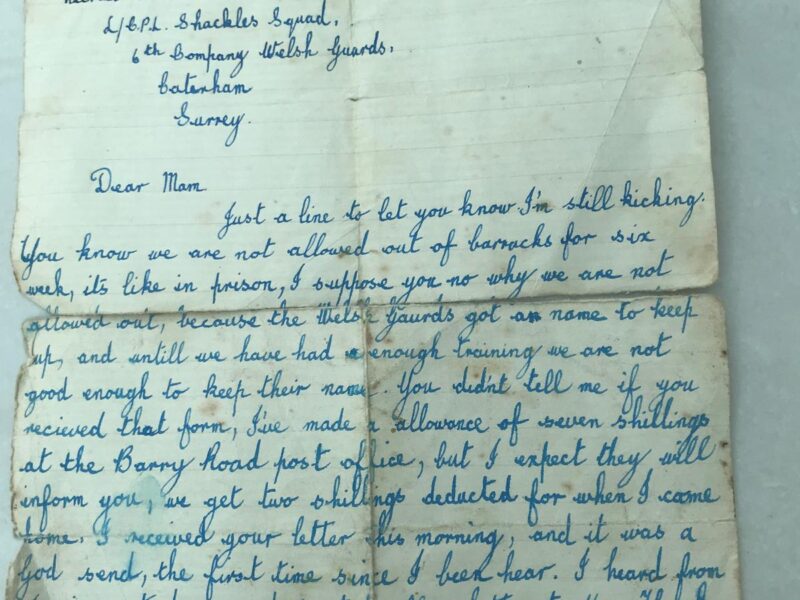 L/CPL. Shackles Squad,
6th Company Welsh Guards,
Caterham
Surrey.
Dear Mam
Just a line to let you know I'm still kicking.
You know we are not allowed out of barracks for six
week, it's like in prison, I suppose you no why we are not
allowed out, because the Welsh Gaurds got an name to keep
up, and untill we have had enough training we are not
good enough to keep their name. You didn't tell me if you
recieved that form, I've made a allowance of seven shillings
at the Barry Road post office, but I expect they will
inform you, we get two shillings deducted for when I come
home. I received your letter this morning, and it was a
God send, the first time since I been hear. I heard from